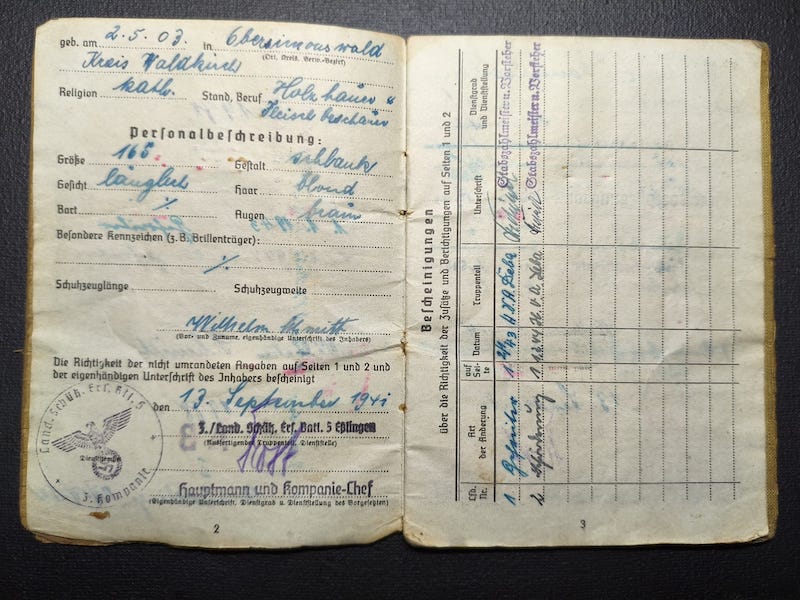 geb. am 2.5.03. in Obersimonswald
(Ort, Kreis, Verw.-Bezirk)
Kreis Waldkirch
Religion kath. Stand, Beruf Holzhauer u
Fleischbeschauer
Personalbeschreibung:
Größe 165 Gestalt schlank
Gesicht länglich Haar blond
Bart ./. Augen braun
Besondere Kennzeichen (z. B. Brillenträger):
./.
Schuhzeuglänge Schuhzeugweite
Wilhelm Schmitt
(Vor- und Zuname, eigenhändige Unterschrift des Inhabers)
Die Richtigkeit der nicht umrandeten Angaben auf Seiten 1 und 2
und der eigenhändigen Unterschrift des Inhabers bescheinigt
den 13. September 1941
3./Land. Schütz. Ers. Batl. 5 Eßlingen
(Ausfertigender Truppenteil, Dienststelle)
Hauptmann und Kompanie-Chef
(Eigenhändige Unterschrift, Dienstgrad u. Dienststellung des Vorgesetzten)
Land. Schütz. Ers. Btl. 5
Dienststempel
3. Kompanie
2
Bescheinigungen
über die Richtigkeit der Zusätze und Berichtigungen auf Seiten 1 und 2
Lfd. Nr.
Art der Änderung
auf Seite
Datum
Truppenteil
Unterschrift
Dienstgrad und Dienststellung
1 Gefreiter 1 Stabszahlmeister u. Vorsteher
2. Beförderung 1 Stabszahlmeister u. Vorsteher
3